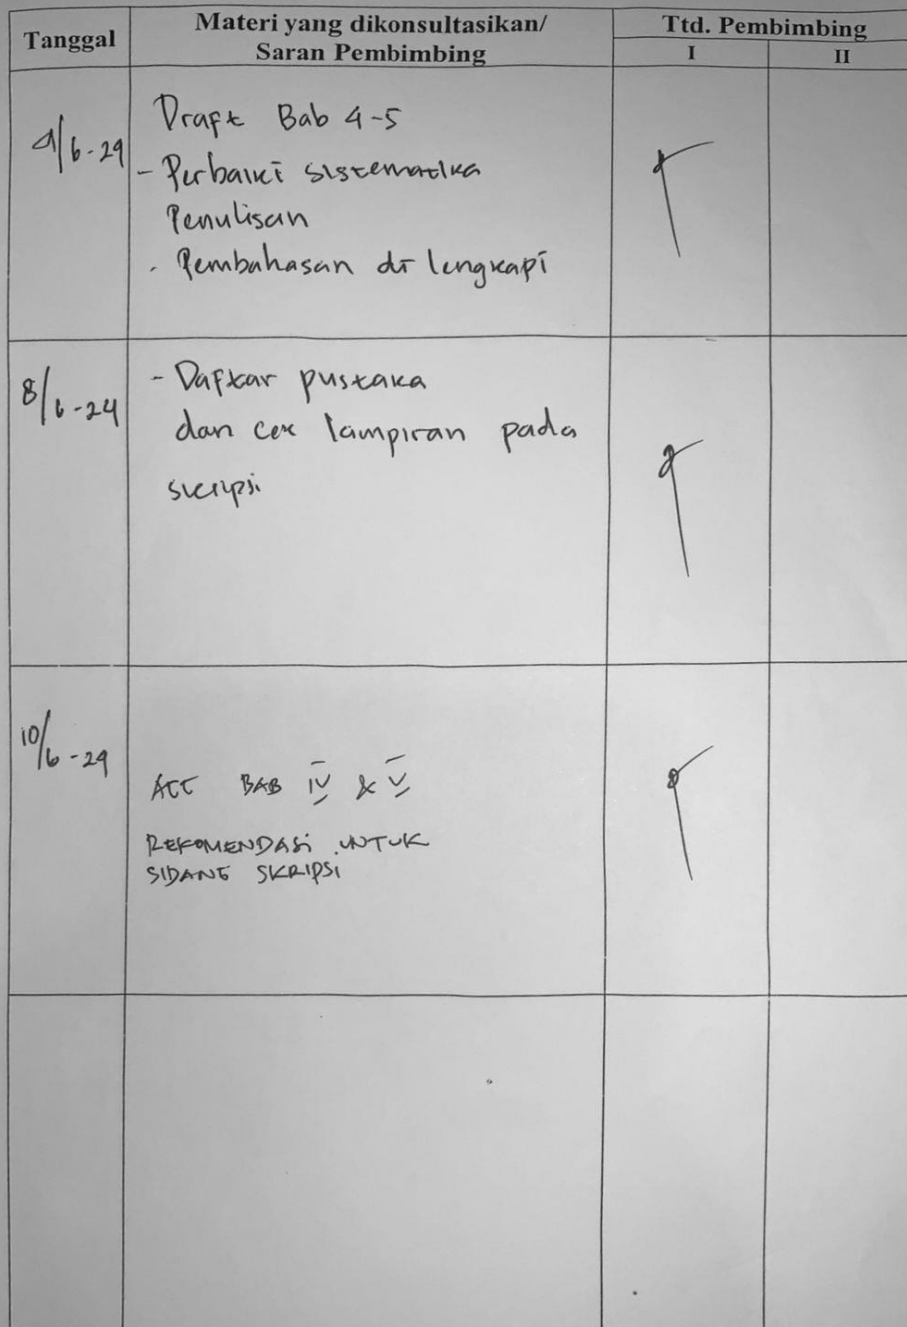 Tanggal
Materi yang dikonsultasikan/
Saran Pembimbing
Ttd. Pembimbing
I
II
4/6-24
Draft Bab 4-5
- Perbaiki sistematika
Penulisan
- Pembahasan di lengkapi
8/6-24
- Daftar pustaka
dan cek lampiran pada
skripsi
10/6-24
ACC BAB IV & V
REKOMENDASI UNTUK
SIDANG SKRIPSI